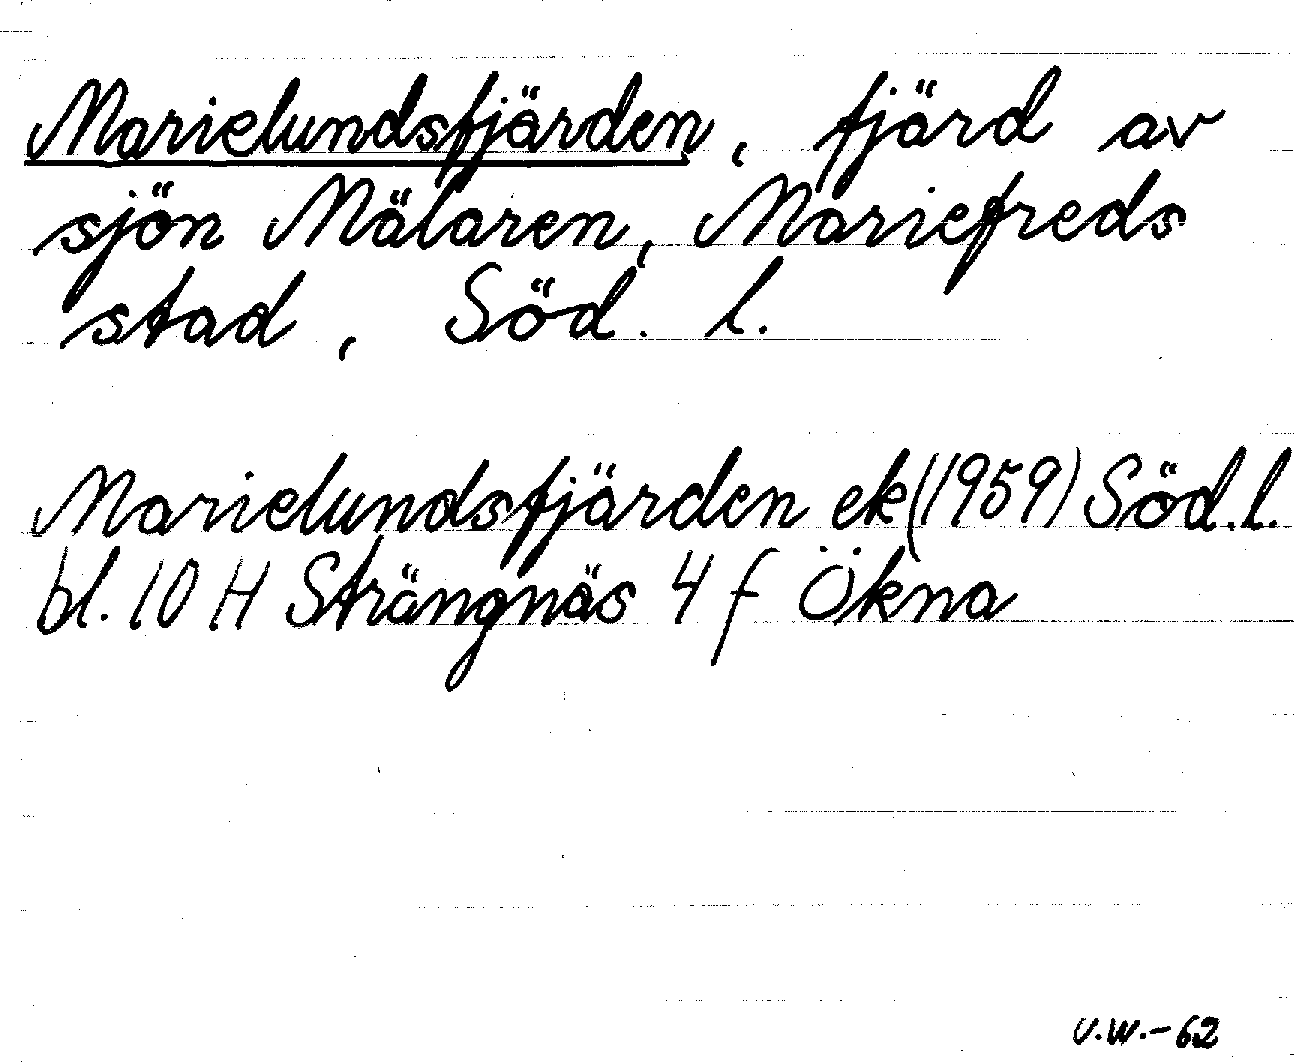 Marielundsfjärden, fjärd av
sjön Mälaren, Mariefreds
stad, Söd. l.
Marielundsfjärden ek (1959) Söd. l.
bl. 10 H Strängnäs 4 f Ökna
U.W.-62